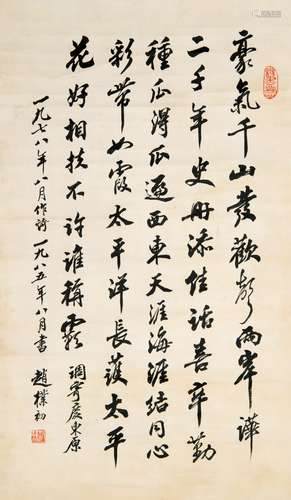 豪氣千山發歡聲兩岸譁
二千年史册添佳話喜辛勤
種瓜得瓜遍西東天涯海涯結同心
彩帶如霞太平洋長護太平
花好相扶不許誰稱霸 調寄慶東原
一九七八年八月作 一九八五年八月書 趙樸初